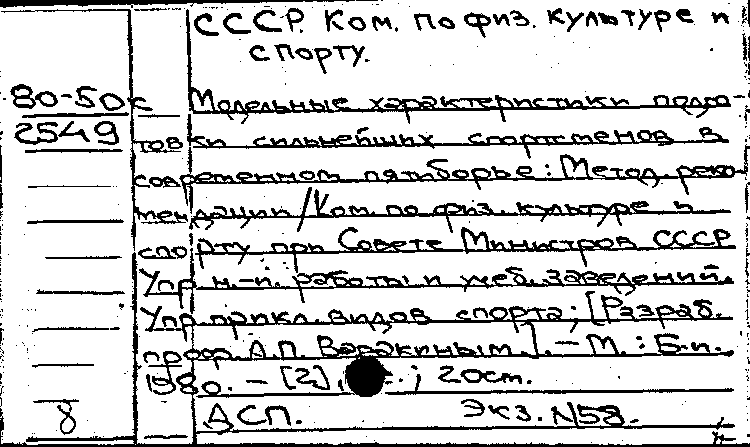 СССР. Ком. по физ. культуре и
спорту.
80-50к Модельные характеристики подго-
2549 товки сильнейших спортсменов в
современном пятиборье: Метод. реко-
мендации / Ком. по физ. культуре и
спорту при Совете Министров СССР
Упр. н.-и. работы и учеб. заведений.
Упр. прикл. видов спорта; [Разраб.
проф. А.П. Варакиным]. - М.: Б.и.
1980. - [2], ; 20 cm.
8 ДСП. Экз. N58.